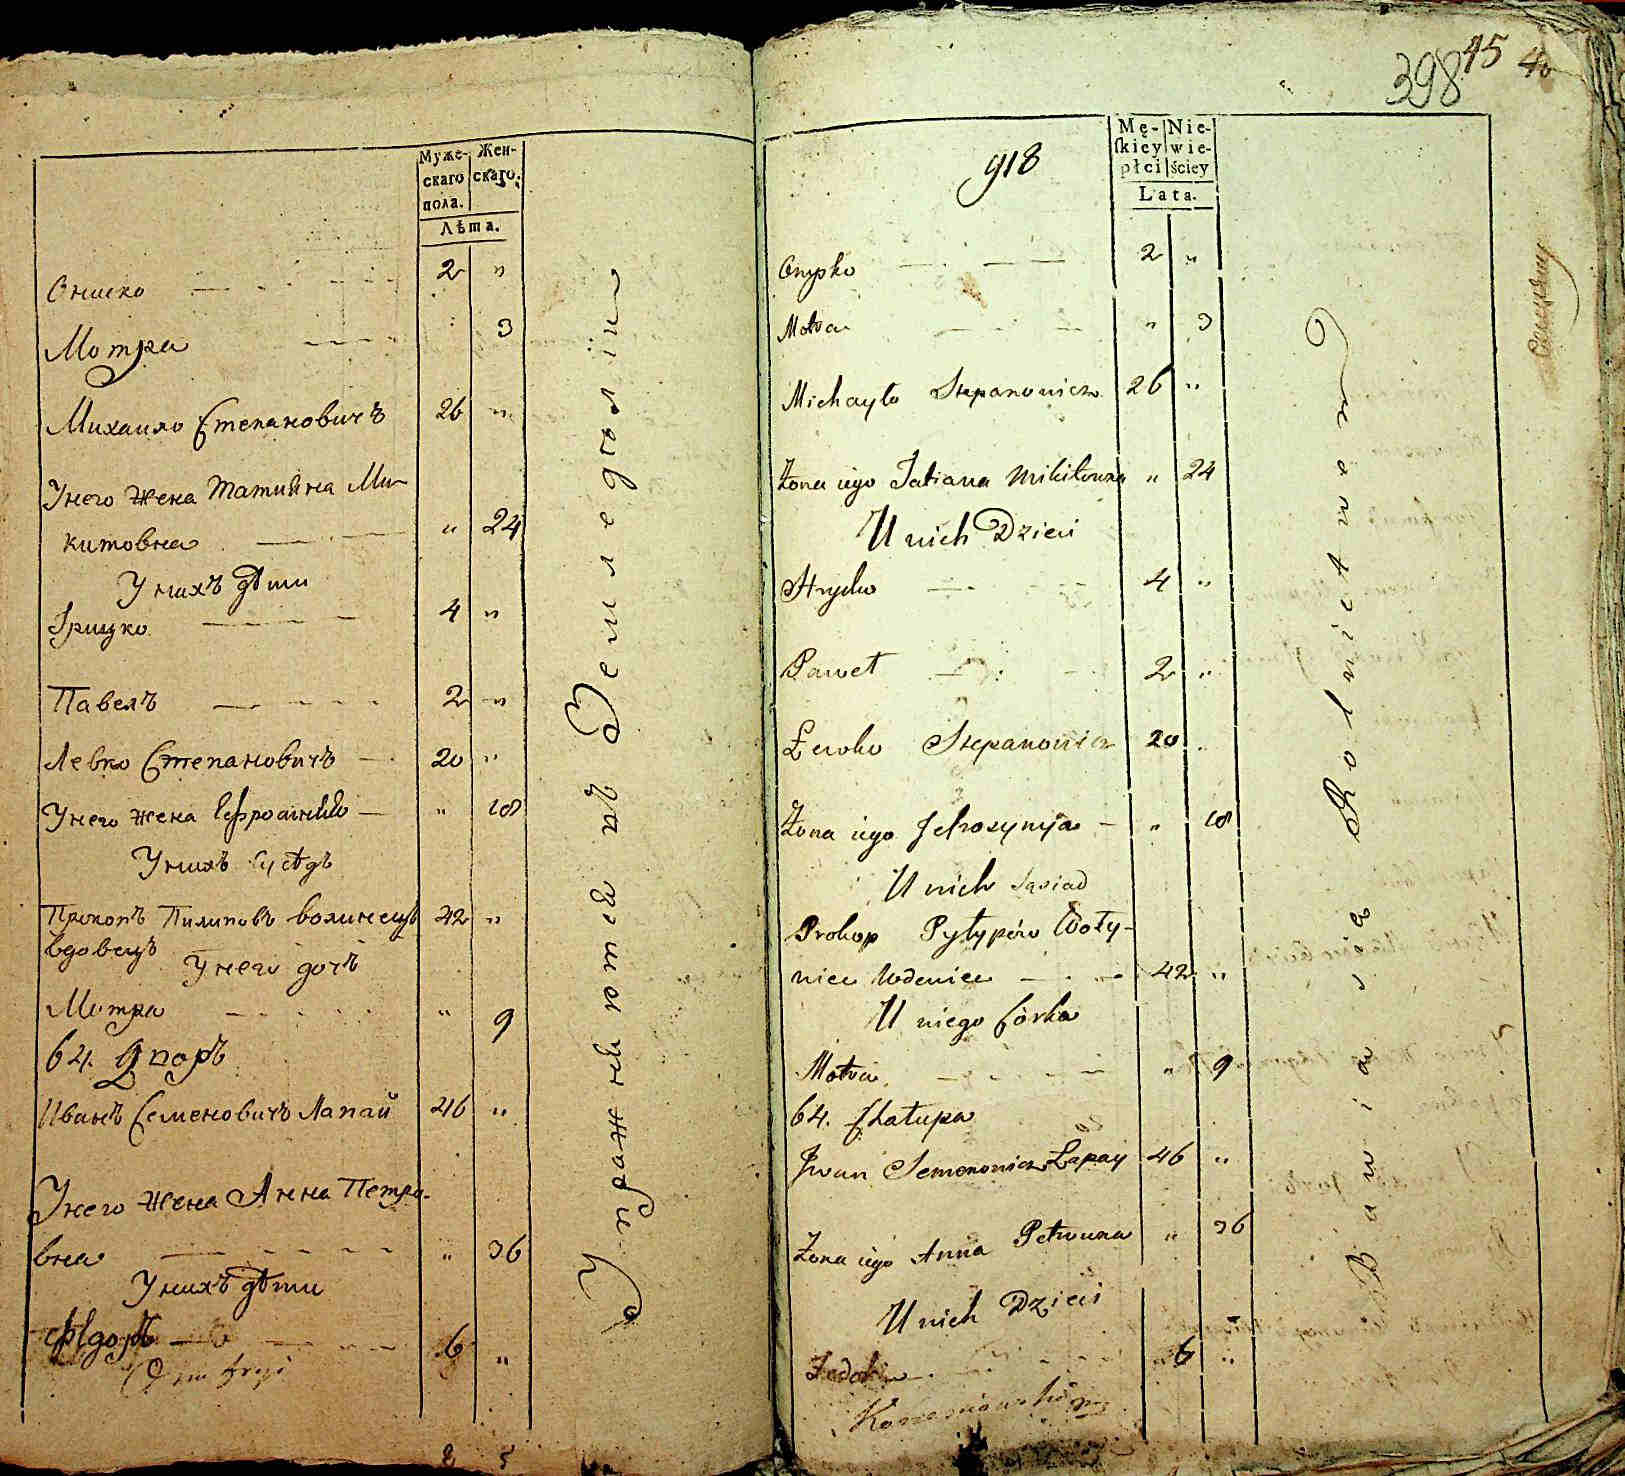 Муже-
скаго
пола.
Жен-
скаго.
Лѣта.
Ониско 2 "
Мотра 3
Михаило Степановичъ 26 "
Унего жена Татияна Ми-
китовна " 24
Унихъ дѣти
Грицко 4 "
Павелъ 2 "
Левко Степановичъ 20 "
Унего жена " 18
Унихъ сусѣдъ
Прокопъ Пилиповъ Волинецъ 42 "
вдовецъ
Унего дочъ
Мотра " 9
64. Дворъ
Иванъ Семеновичъ Лапай 46 "
Унего жена Анна Петро-
вна " 36
Унихъ дѣти
Федоръ 6 "
Упражняются въ Земледѣлїи
398 45 40
918
Mę-
skiey
płci
Nie-
wie-
ściey
Lata.
Onyśko 2 "
Motra " 3
Michayło Stepanowicz 26 "
Żona iego Tatiana Mikitowna " 24
U nich Dzieci
Hryćko 4 "
Paweł 2 "
Łewko Stepanowicz 20 "
Żona iego Jefrosynija " 18
U nich Sąsiad
Prokop Pyłypów Woły-
niec Wdowiec 42 "
U niego Córka
Motra " 9
64. Chałupa
Jwan Semenowicz Łapay 46 "
Żona iego Anna Petrowna " 36
U nich Dzieci
Fedor 6 "
Bawią się Rolnictwem